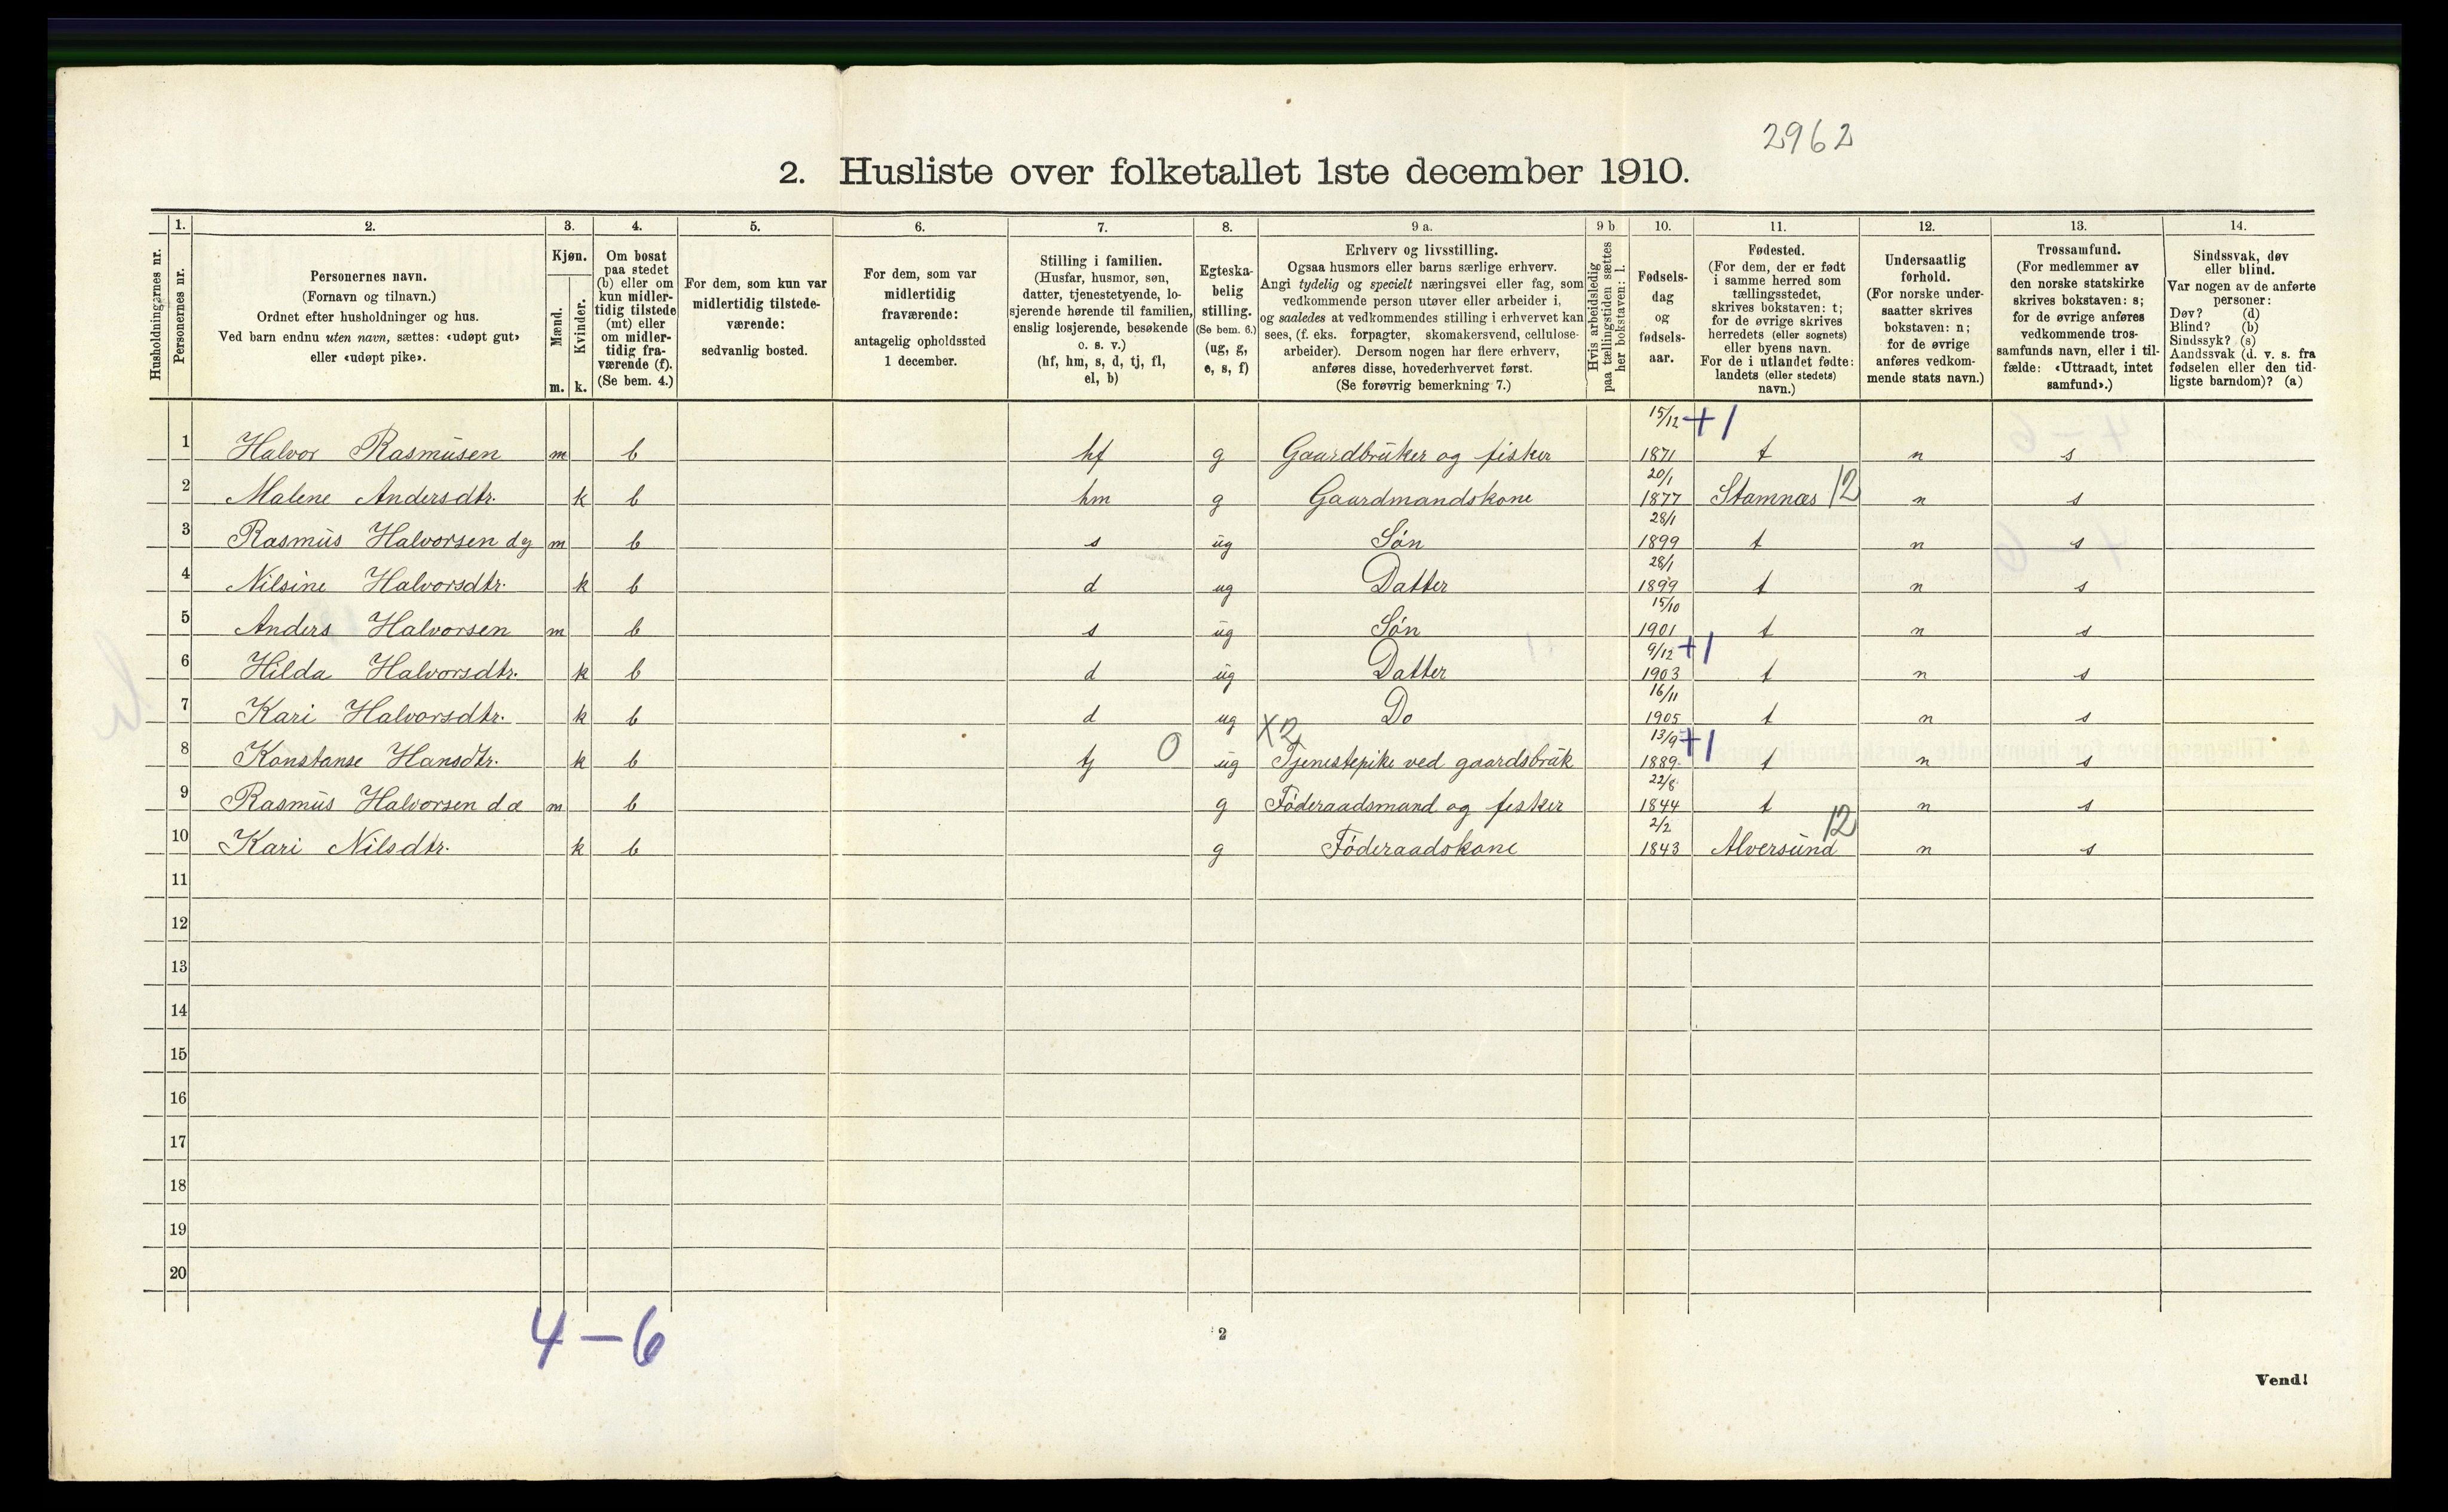 2962
2. Husliste over folketallet 1ste december 1910.
Husholdningernes nr.
1. Personernes nr.
2. Personernes navn.
(Fornavn og tilnavn.)
Ordnet efter husholdninger og hus.
Ved barn endnu uten navn, sættes: «udøpt gut»
eller «udøpt pike».
3. Kjøn.
Mænd. m.
Kvinder. k.
4. Om bosat
paa stedet
(b) eller om
kun midler-
tidig tilstede
(mt) eller
om midler-
tidig fra-
værende (f).
(Se bem. 4.)
5. For dem, som kun var
midlertidig tilstede-
værende:
sedvanlig bosted.
6. For dem, som var
midlertidig
fraværende:
antagelig opholdssted
1 december.
7. Stilling i familien.
(Husfar, husmor, søn,
datter, tjenestetyende, lo-
sjerende hørende til familien,
enslig losjerende, besøkende
o. s. v.)
(hf, hm, s, d, tj, fl,
el, b)
8. Egteska-
belig
stilling.
(Se bem. 6.)
(ug, g,
e, s, f)
9 a. Erhverv og livsstilling.
Ogsaa husmors eller barns særlige erhverv.
Angi tydelig og specielt næringsvei eller fag, som
vedkommende person utøver eller arbeider i,
og saaledes at vedkommendes stilling i erhvervet kan
sees, (f. eks. forpagter, skomakersvend, cellulose-
arbeider). Dersom nogen har flere erhverv,
anføres disse, hovederhvervet først.
(Se forøvrig bemerkning 7.)
9 b Hvis arbeidsledig
paa tællingstiden sættes
her bokstaven: l.
10. Fødsels-
dag
og
fødsels-
aar.
11. Fødested.
(For dem, der er født
i samme herred som
tællingsstedet,
skrives bokstaven: t;
for de øvrige skrives
herredets (eller sognets)
eller byens navn.
For de i utlandet fødte:
landets (eller stedets)
navn.)
12. Undersaatlig
forhold.
(For norske under-
saatter skrives
bokstaven: n;
for de øvrige
anføres vedkom-
mende stats navn.)
13. Trossamfund.
(For medlemmer av
den norske statskirke
skrives bokstaven: s;
for de øvrige anføres
vedkommende tros-
samfunds navn, eller i til-
fælde: «Uttraadt, intet
samfund».)
14. Sindssvak, døv
eller blind.
Var nogen av de anførte
personer:
Døv? (d)
Blind? (b)
Sindssyk? (s)
Aandssvak (d. v. s. fra
fødselen eller den tid-
ligste barndom)? (a)
1 Halvor Rasmusen m b hf g Gaardbruker og fisker 15/12 +1 1871 t n s
2 Malene Andersdtr. k b hm g Gaardmandskone 20/1 1877 Stamnæs 12 n s
3 Rasmus Halvorsen d y m b s ug Søn 28/1 1899 t n s
4 Nilsine Halvorsdtr. k b d ug Datter 28/1 1899 t n s
5 Anders Halvorsen m b s ug Søn 15/10 1901 t n s
6 Hilda Halvorsdtr. k b d ug Datter 9/12 +1 1903 t n s
7 Kari Halvorsdtr. k b d ug Do 16/11 1905 t n s
8 Konstanse Hansdtr. k b tj 0 ug X2 Tjenestepike ved gaardsbruk 13/9 +1 1889 t n s
9 Rasmus Halvorsen d æ m b g Føderaadsmand og fisker 22/8 1844 t n s
10 Kari Nilsdtr. k b g Føderaadskone 2/2 1843 Alversund 12 n s
11
12
13
14
15
16
17
18
19
20
4 - 6
2
Vend!